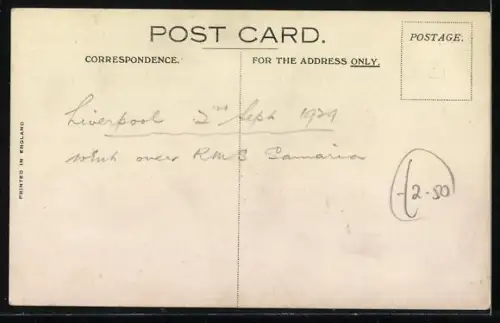 POST CARD.
POSTAGE.
CORRESPONDENCE.
FOR THE ADDRESS ONLY.
Liverpool 2nd Sept 1929
over RMS Samaria
PRINTED IN ENGLAND
2-50